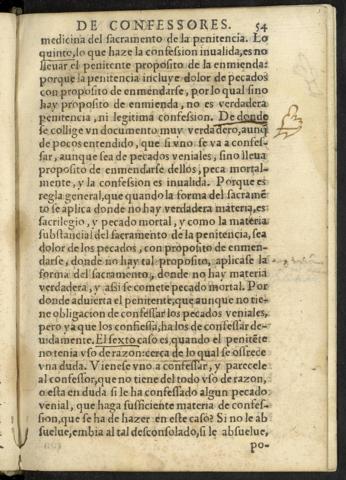 DE CONFESSORES. 54
medicina del sacramento de la penitencia. Lo
quinto, lo que haze la confession inualida, es no
lleuar el penitente proposito de la enmienda:
porque la penitencia incluye dolor de pecados
con proposito de enmendarse, por lo qual sino
hay proposito de enmienda, no es verdadera
penitencia, ni legitima confession. De donde
se collige vn documento muy verdadero, aunq̃
de pocos entendido, que si vno se va a confes-
sar, aunque sea de pecados veniales, sino lleua
proposito de enmendarse dellos, peca mortal-
mente, y la confession es inualida. Porque es
regla general, que quando la forma del sacramē
to se aplica donde no hay verdadera materia, es
sacrilegio, y pecado mortal, y como la materia
substancial del sacramento de la penitencia, sea
dolor de los pecados, con proposito de enmen-
darse, donde no hay tal proposito, aplicase la
forma del sacramento, donde no hay materia
verdadera, y assi se comete pecado mortal. Por
donde aduierta el penitente, que aunque no tie-
ne obligacion de confessar los pecados veniales,
pero ya que los confiessa, ha los de confessar de-
uidamente. El sexto caso es, quando el penitēte
no tenia vso de razon: cerca de lo qual se ofrece
vna duda. Vienese vno a confessar, y parecele
al confessor, que no tiene del todo vso de razon,
o esta en duda si le ha confessado algun pecado
venial, que haga sufficiente materia de confes-
sion, que se ha de hazer en este caso? Si no le ab
suelue, embia al tal desconsolado, si le absuelue,
po-